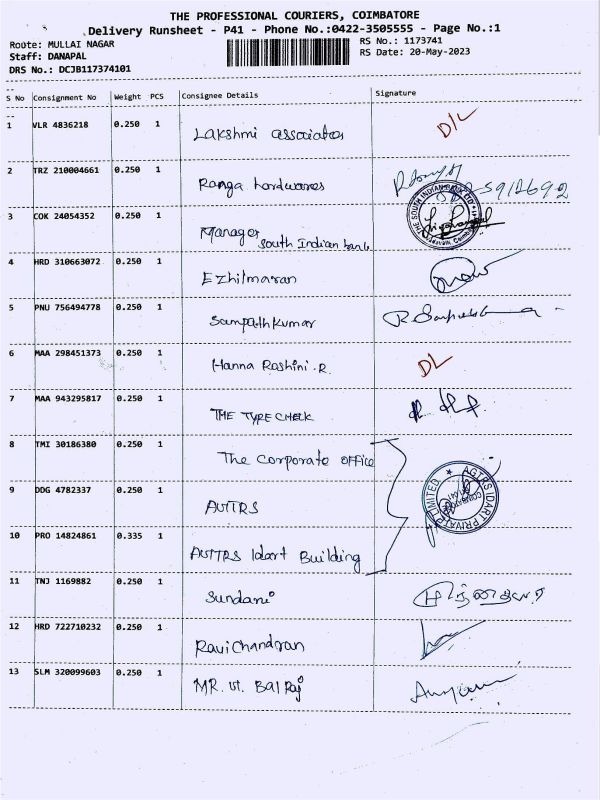 THE PROFESSIONAL COURIERS, COIMBATORE
Delivery Runsheet - P41 - Phone No.:0422-3505555 - Page No.:1
Route: MULLAI NAGAR
RS No.: 1173741
Staff: DANAPAL
RS Date: 20-May-2023
DRS No.: DCJB117374101
S No Consignment No Weight PCS Consignee Details Signature
1 VLR 4836218 0.250 1 Lakshmi associates D/L
2 TRZ 210004661 0.250 1 Ranga hardwares
3 COK 24054352 0.250 1 Manager South Indian bank
THE SOUTH INDIAN BANK LTD
4 HRD 310663072 0.250 1 Ezhilmaran
5 PNU 756494778 0.250 1 Sampath Kumar
6 MAA 298451373 0.250 1 Hanna Roshini. R. DL
7 MAA 943295817 0.250 1 THE TYPE CHECK
8 TMI 30186380 0.250 1 The Corporate office
9 DDG 4782337 0.250 1
AGTRS IDART PRIVATE LIMITED
10 PRO 14824861 0.335 1 Idart Building
11 TNJ 1169882 0.250 1
12 HRD 722710232 0.250 1 Ravichandran
13 SLM 320099603 0.250 1 MR. Bal Raj